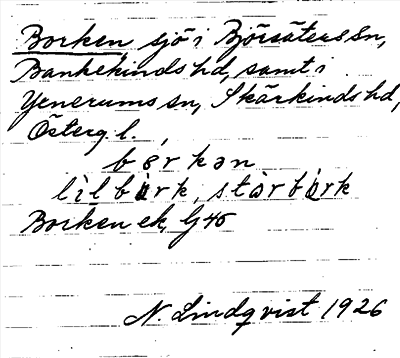 Borken sjö i Björsäters sn,
Bankekinds hd, samt i
Yxnerums sn, Skärkinds hd,
Österg. l.
bo̱rkən
lìlbo̱rk, stòrbo̱rk
Borken ek, Gj 45
N. Lindqvist 1926